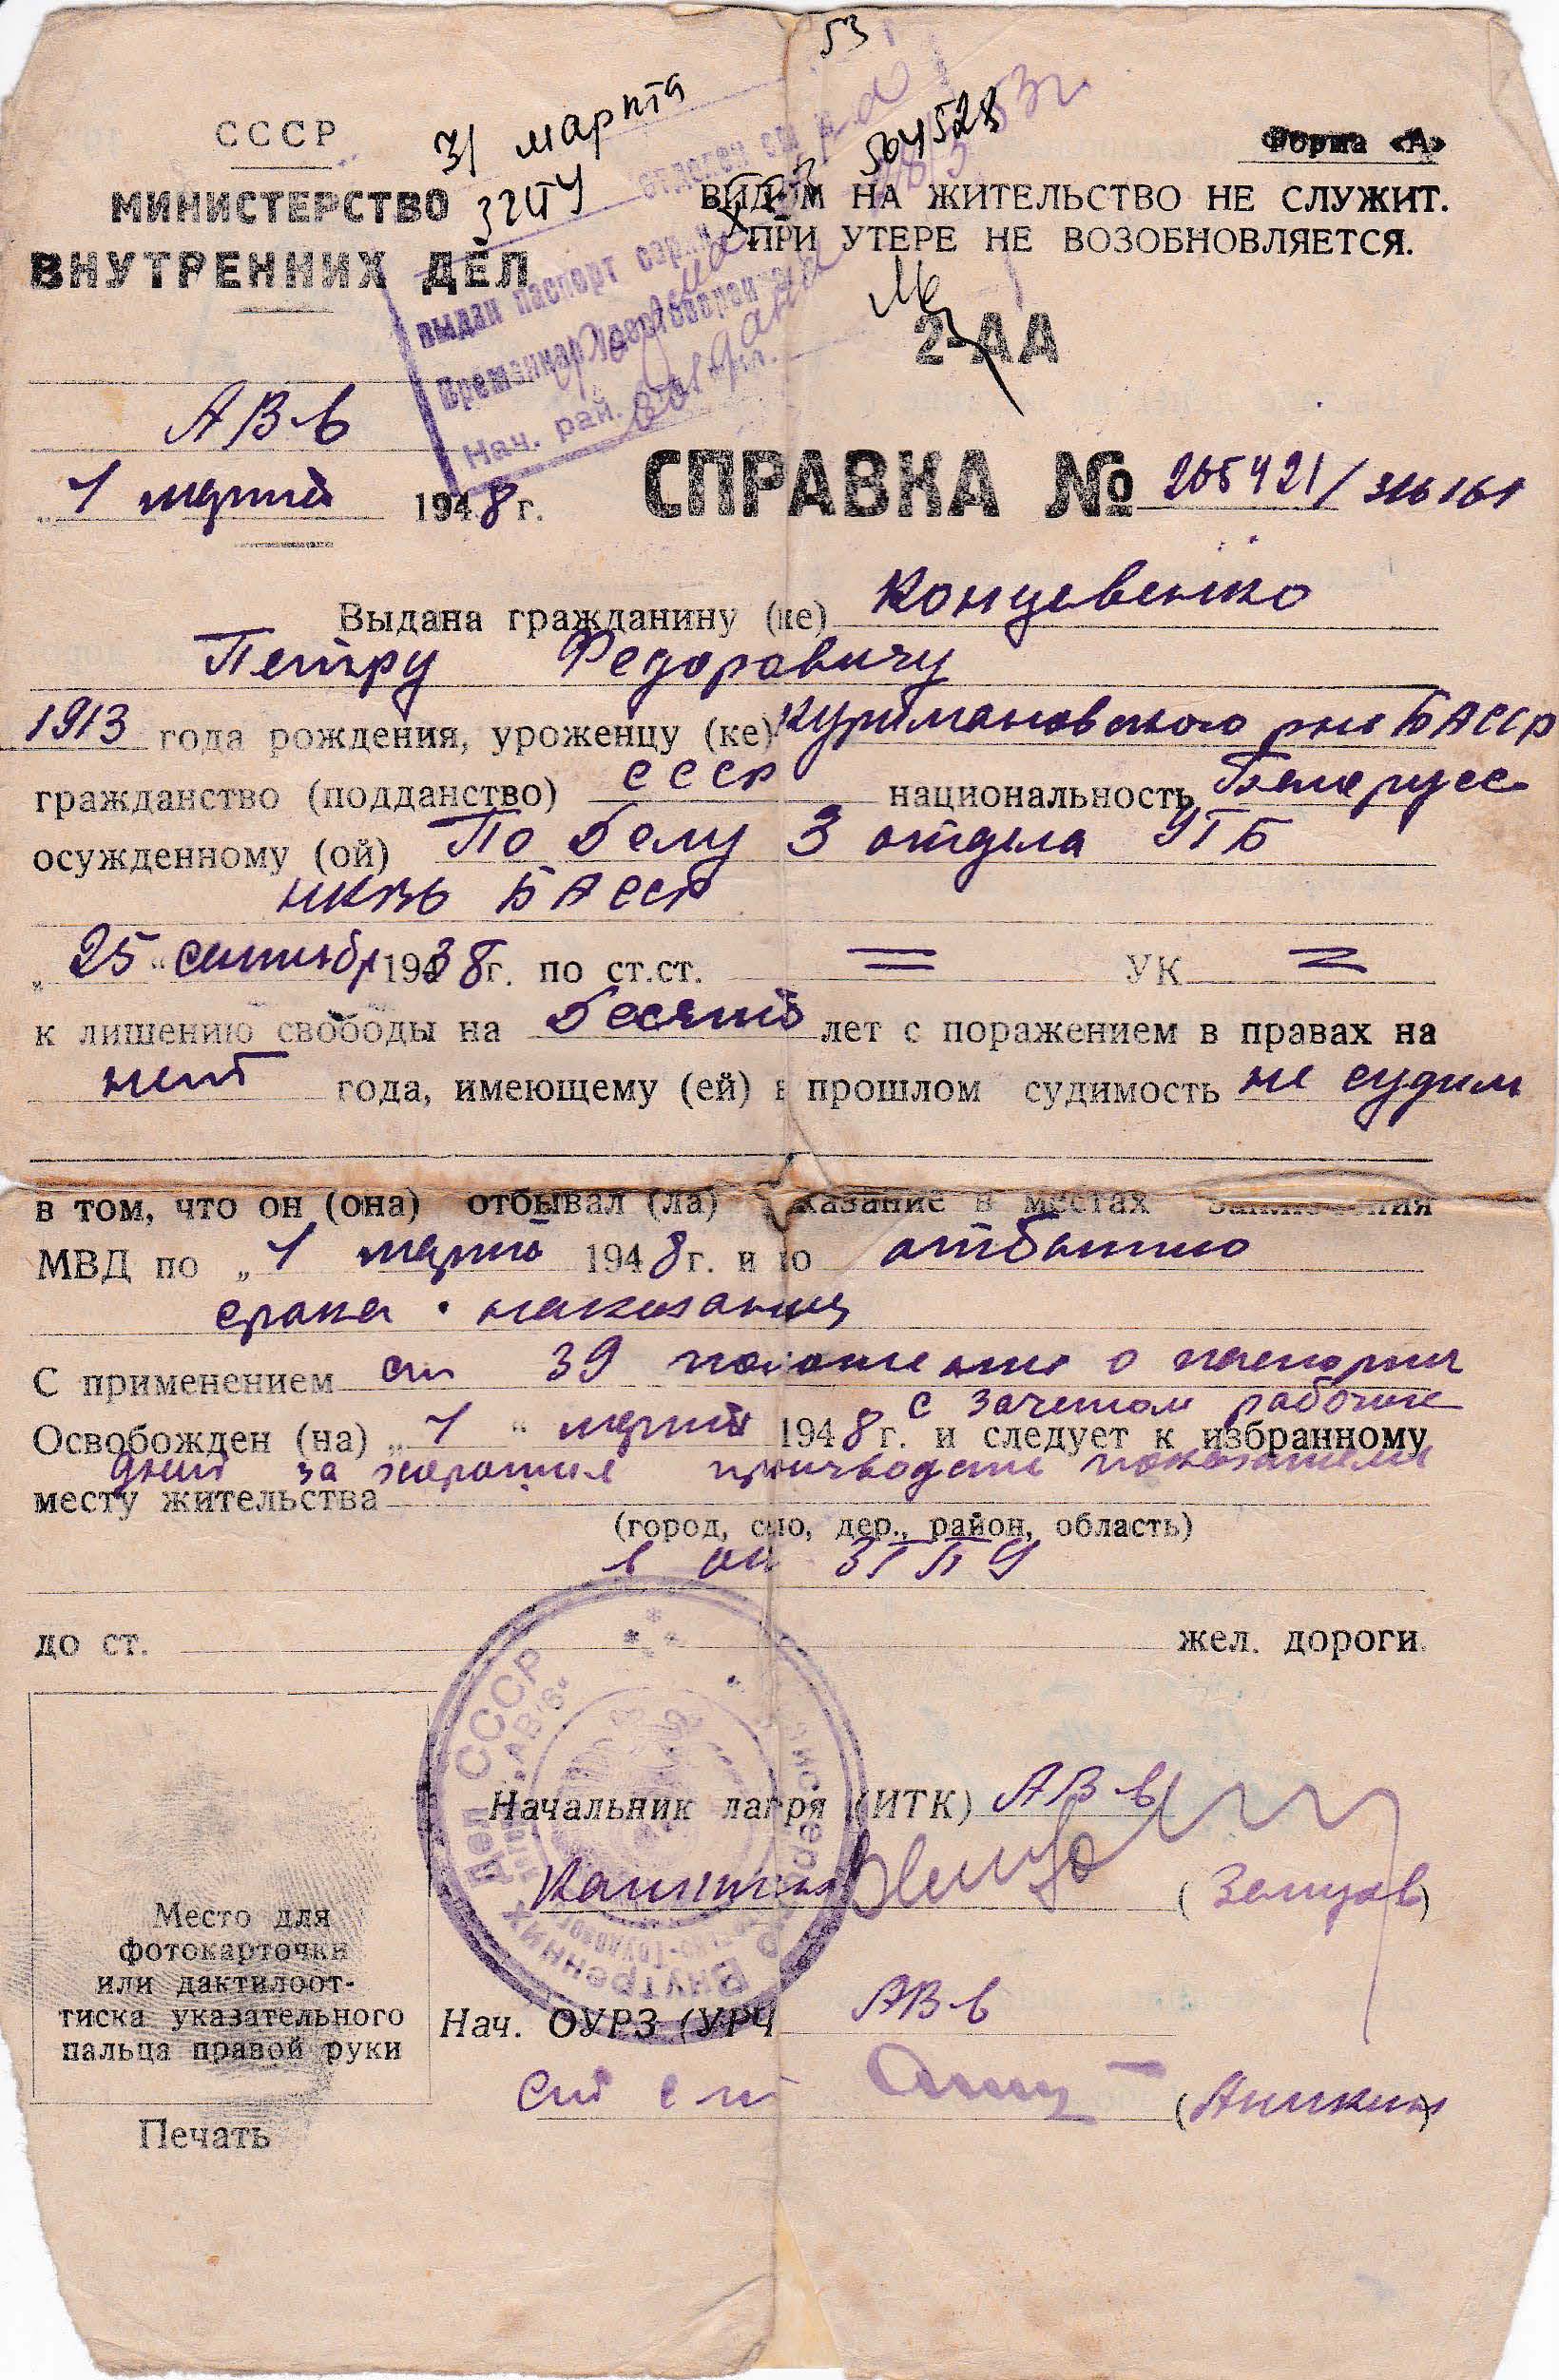 53
31 марта
504528
СССР
Форма «А»
МИНИСТЕРСТВО
ВНУТРЕННИХ ДЕЛ
ВИДОМ НА ЖИТЕЛЬСТВО НЕ СЛУЖИТ.
ПРИ УТЕРЕ НЕ ВОЗОБНОВЛЯЕТСЯ.
выдан паспорт серии
Нач. рай.
2-АА
АВ-6
„1 марта 1948 г.
СПРАВКА № 265421/316161
Выдана гражданину (ке) Концевенко
Петру Федоровичу
1913 года рождения, уроженцу (ке) БАССР
гражданство (подданство) СССР национальность Белорусс
осужденному (ой) По делу 3 отдела УГБ
НКВД БАССР
„25“ сентябр 1938 г. по ст.ст. = УК =
к лишению свободы на Десять лет с поражением в правах на
нет года, имеющему (ей) в прошлом судимость не судим
в том, что он (она) отбывал (ла) наказание в местах заключения
МВД по „1 марта 1948 г. и по отбытию
срока наказания
С применением ст 39 положения о паспортах
с зачетом рабочих
Освобожден (на) „1“ марта 1948 г. и следует к избранному
дней за хорошие производств показатели
месту жительства
(город, село, дер., район, область)
до ст. жел. дороги.
Внутренних Дел СССР
Начальник лагря (ИТК) АВ-6
Капитан (Зенцов)
Место для
фотокарточки
или дактилоот-
тиска указательного
пальца правой руки
Нач. ОУРЗ (УРЧ АВ-6
(Аникин)
Печать